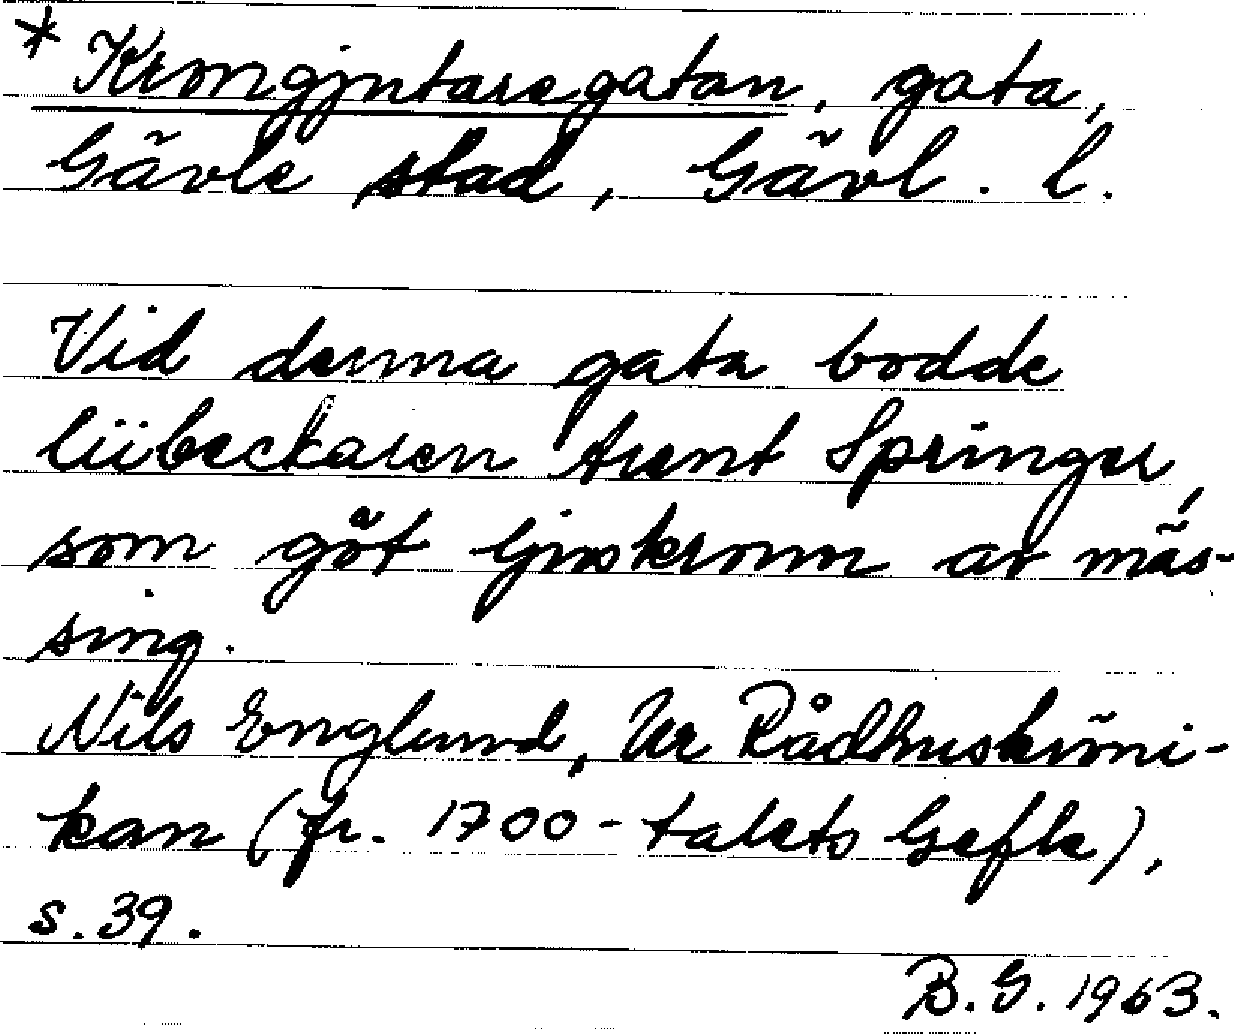 * Krongjutaregatan, gata,
Gävle stad, Gävl. l.
Vid denna gata bodde
lübeckaren Arent Springer,
som göt ljuskronor av mäs-
sing.
Nils Englund, Ur Rådhuskröni-
kan (fr. 1700-talets Gefle),
s. 39.
B. G. 1963.